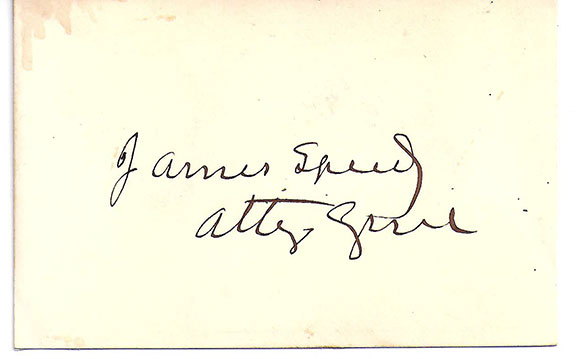 James Speed
Atty Genl